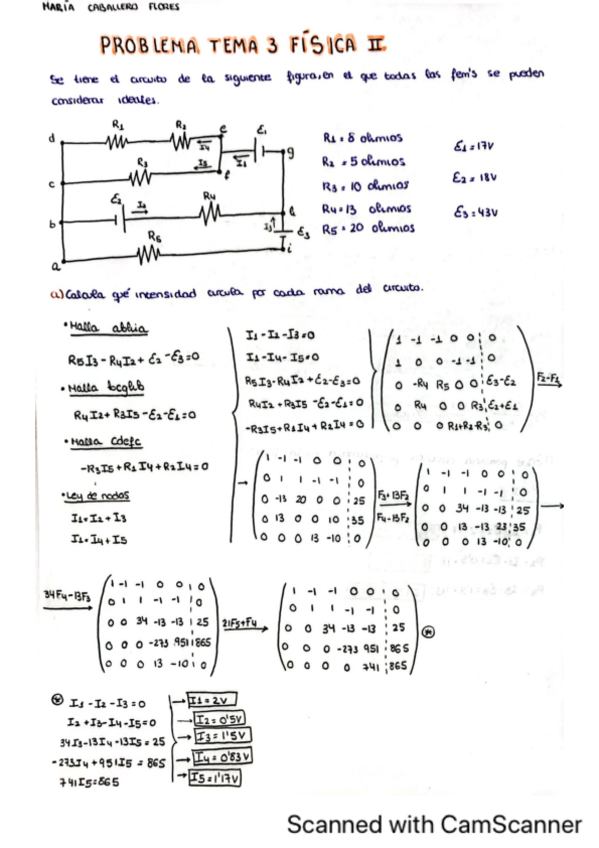 MARÍA CABALLERO FLORES
PROBLEMA TEMA 3 FÍSICA II
Se tiene el circuito de la siguiente figura, en el que todas las fem's se pueden
considerar ideales.
R1 R2 e E1
d I4 g
R3 I5 f I1
c
E2 I2 R4
b I3 E3
R5 i
a
R1 = 8 ohmios E1 = 17V
R2 = 5 ohmios
R3 = 10 ohmios E2 = 18V
R4 = 13 ohmios E3 = 43V
R5 = 20 ohmios
a) Calcula qué intensidad circula por cada rama del circuito.
• Malla abhia
R5I3 - R4I2 + E2 - E3 = 0
• Malla bcghb
R4I2 + R3I5 - E2 - E1 = 0
• Malla cdefc
-R3I5 + R1I4 + R2I4 = 0
• Ley de nodos
I1 = I2 + I3
I1 = I4 + I5
I1 - I2 - I3 = 0
I1 - I4 - I5 = 0
R5I3 - R4I2 + E2 - E3 = 0
R4I2 + R3I5 - E2 - E1 = 0
-R3I5 + R1I4 + R2I4 = 0
1 -1 -1 0 0 0
1 0 0 -1 -1 0
0 -R4 R5 0 0 E3-E2
0 R4 0 0 R3 E2+E1
0 0 0 R1+R2 -R3 0
F2-F1
1 -1 -1 0 0 0
0 1 1 -1 -1 0
0 -13 20 0 0 25
0 13 0 0 10 35
0 0 0 13 -10 0
F3+13F2
F4-13F2
1 -1 -1 0 0 0
0 1 1 -1 -1 0
0 0 34 -13 -13 25
0 0 13 -13 23 35
0 0 0 13 -10 0
34F4-13F3
1 -1 -1 0 0 0
0 1 1 -1 -1 0
0 0 34 -13 -13 25
0 0 0 -273 951 865
0 0 0 13 -10 0
21F5+F4
1 -1 -1 0 0 0
0 1 1 -1 -1 0
0 0 34 -13 -13 25
0 0 0 -273 951 865
0 0 0 0 741 865
I1 - I2 - I3 = 0 → I1 = 2V
I2 + I3 - I4 - I5 = 0 → I2 = 0'5V
34I3 - 13I4 - 13I5 = 25 → I3 = 1'5V
-273I4 + 951I5 = 865 → I4 = 0'83V
741I5 = 865 → I5 = 1'17V
Scanned with CamScanner